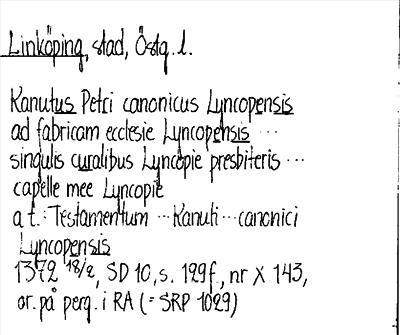 Linköping, stad, Östg. l.
Kanutus Petri canonicus Lyncopensis
ad fabricam ecclesie Lyncopensis ...
singulis curalibus Lyncopie presbiteris ...
capelle mee Lyncopie
a t.: Testamentum ... Kanuti ... canonici
Lyncopensis
1372 18/2, SD 10, s. 129 f., nr X 143,
or. på perg. i RA (= SRP 1029)